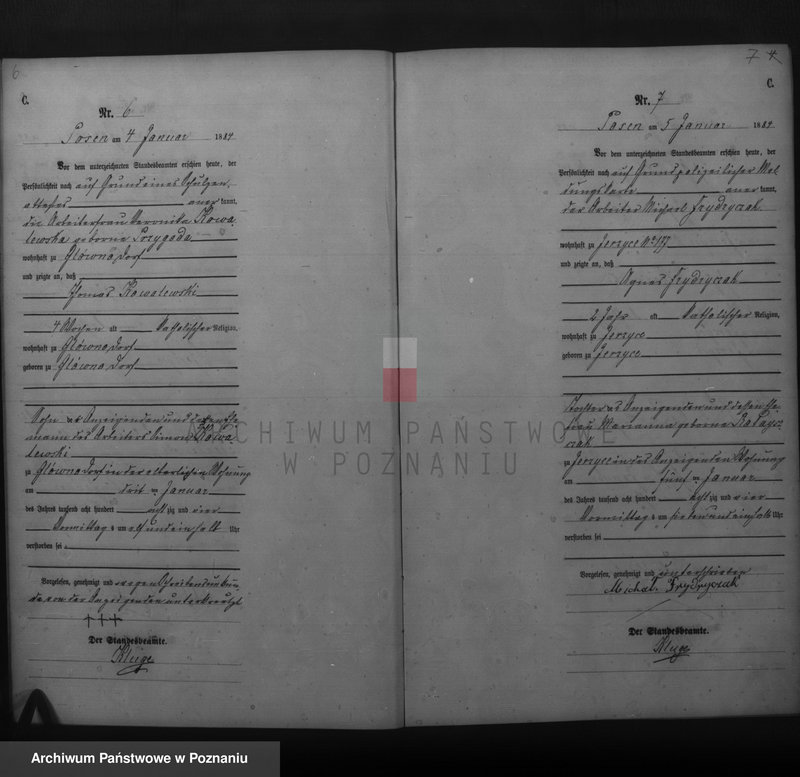 6
C.
Nr. 6
Posen am 4 Januar 1884
Vor dem unterzeichneten Standesbeamten erschien heute, der
Persönlichkeit nach auf Grund eines Schulzen
attestes anerkannt,
die Arbeiterfrau Veronika Kowa
lewska geborne Przygoda
wohnhaft zu Glówna Dorf
und zeigte an, daß
Thomas Kowalewski
4 Wochen alt Katholischer Religion,
wohnhaft zu Glówna Dorf
geboren zu Glówna Dorf
Sohn der Anzeigenden und deren Ehe
mann des Arbeiters Simon Kowa
lewski
zu Glówna Dorf in der elterlichen Wohnung
am drei ten Januar
des Jahres tausend acht hundert acht zig und vier
Vormittags um elf und ein halb Uhr
verstorben sei
Vorgelesen, genehmigt und wegen Schreibensunkun
de von der Anzeigenden unterkreuzt
+++
Der Standesbeamte.
Kluge
7
C.
Nr. 7
Posen am 5 Januar 1884
Vor dem unterzeichneten Standesbeamten erschien heute, der
Persönlichkeit nach auf Grund polizeilicher Mel
dungskarte anerkannt,
der Arbeiter Michael Frydryczak
wohnhaft zu Jerzyce No 177
und zeigte an, daß
Agnes Frydryczak
2 Jahr alt Katholischer Religion,
wohnhaft zu Jerzyce
geboren zu Jerzyce
Tochter des Anzeigenden und dessen Ehe
frau Marianna geborne Ratajcz
zak
zu Jerzyce in des Anzeigenden Wohnung
am fünf ten Januar
des Jahres tausend acht hundert acht zig und vier
Vormittags um sieben und ein halb Uhr
verstorben sei
Vorgelesen, genehmigt und unterschrieben
Michał Frydryczak
Der Standesbeamte.
Kluge
ARCHIWUM PAŃSTWOWE
W POZNANIU
Archiwum Państwowe w Poznaniu